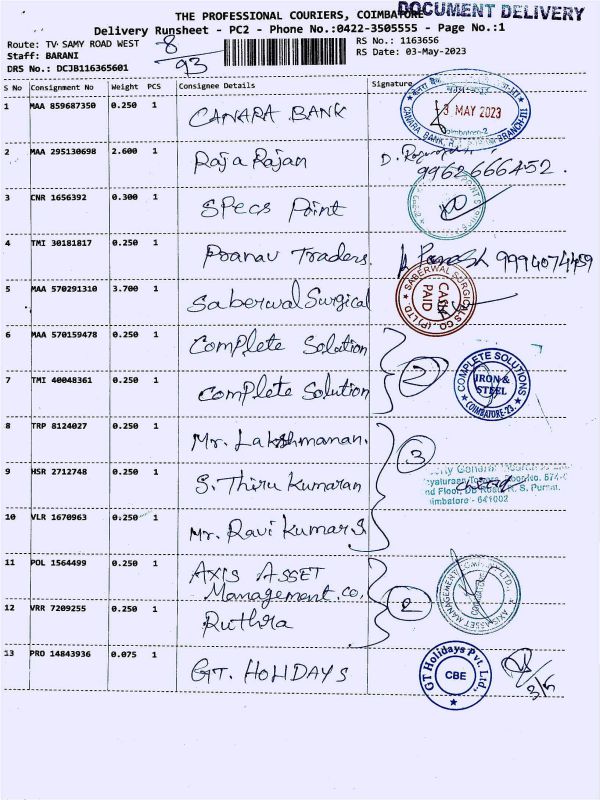 DOCUMENT DELIVERY
THE PROFESSIONAL COURIERS, COIMBATORE
Delivery Runsheet - PC2 - Phone No.:0422-3505555 - Page No.:1
Route: TV SAMY ROAD WEST 8 RS No.: 1163656
Staff: BARANI 93 RS Date: 03-May-2023
DRS No.: DCJB116365601
S No Consignment No Weight PCS Consignee Details Signature
1 MAA 859687350 0.250 1 CANARA BANK
CANARA BANK
3 MAY 2023
Coimbatore-2
2 MAA 295130698 2.600 1 Raja Rajan
9962666452.
3 CNR 1656392 0.300 1 Specs Point
4 TMI 30181817 0.250 1 Pranav Traders. 9994074459
5 MAA 570291310 3.700 1 Saberwal Surgical
SABERWAL SURGICALS CO. (P) LTD.
CASH
PAID
6 MAA 570159478 0.250 1 Complete Solution
7 TMI 40048361 0.250 1 Complete Solution 2
COMPLETE SOLUTIONS
IRON &
STEEL
COIMBATORE-23.
8 TRP 8124027 0.250 1 Mr. Lakshmanan. 3
9 HSR 2712748 0.250 1 S. Thiru Kumaran
nd Floor, DB Road, R. S. Puram,
imbatore - 641002
10 VLR 1670963 0.250 1 Mr. Ravi Kumar S
11 POL 1564499 0.250 1 AXIS ASSET
Management. co.
AXIS ASSET MANAGEMENT COMPANY LTD.,
12 VRR 7209255 0.250 1 Ruthra 2
13 PRO 14843936 0.075 1 GT. HOLIDAYS 3/5
GT Holidays Pvt. Ltd.,
CBE